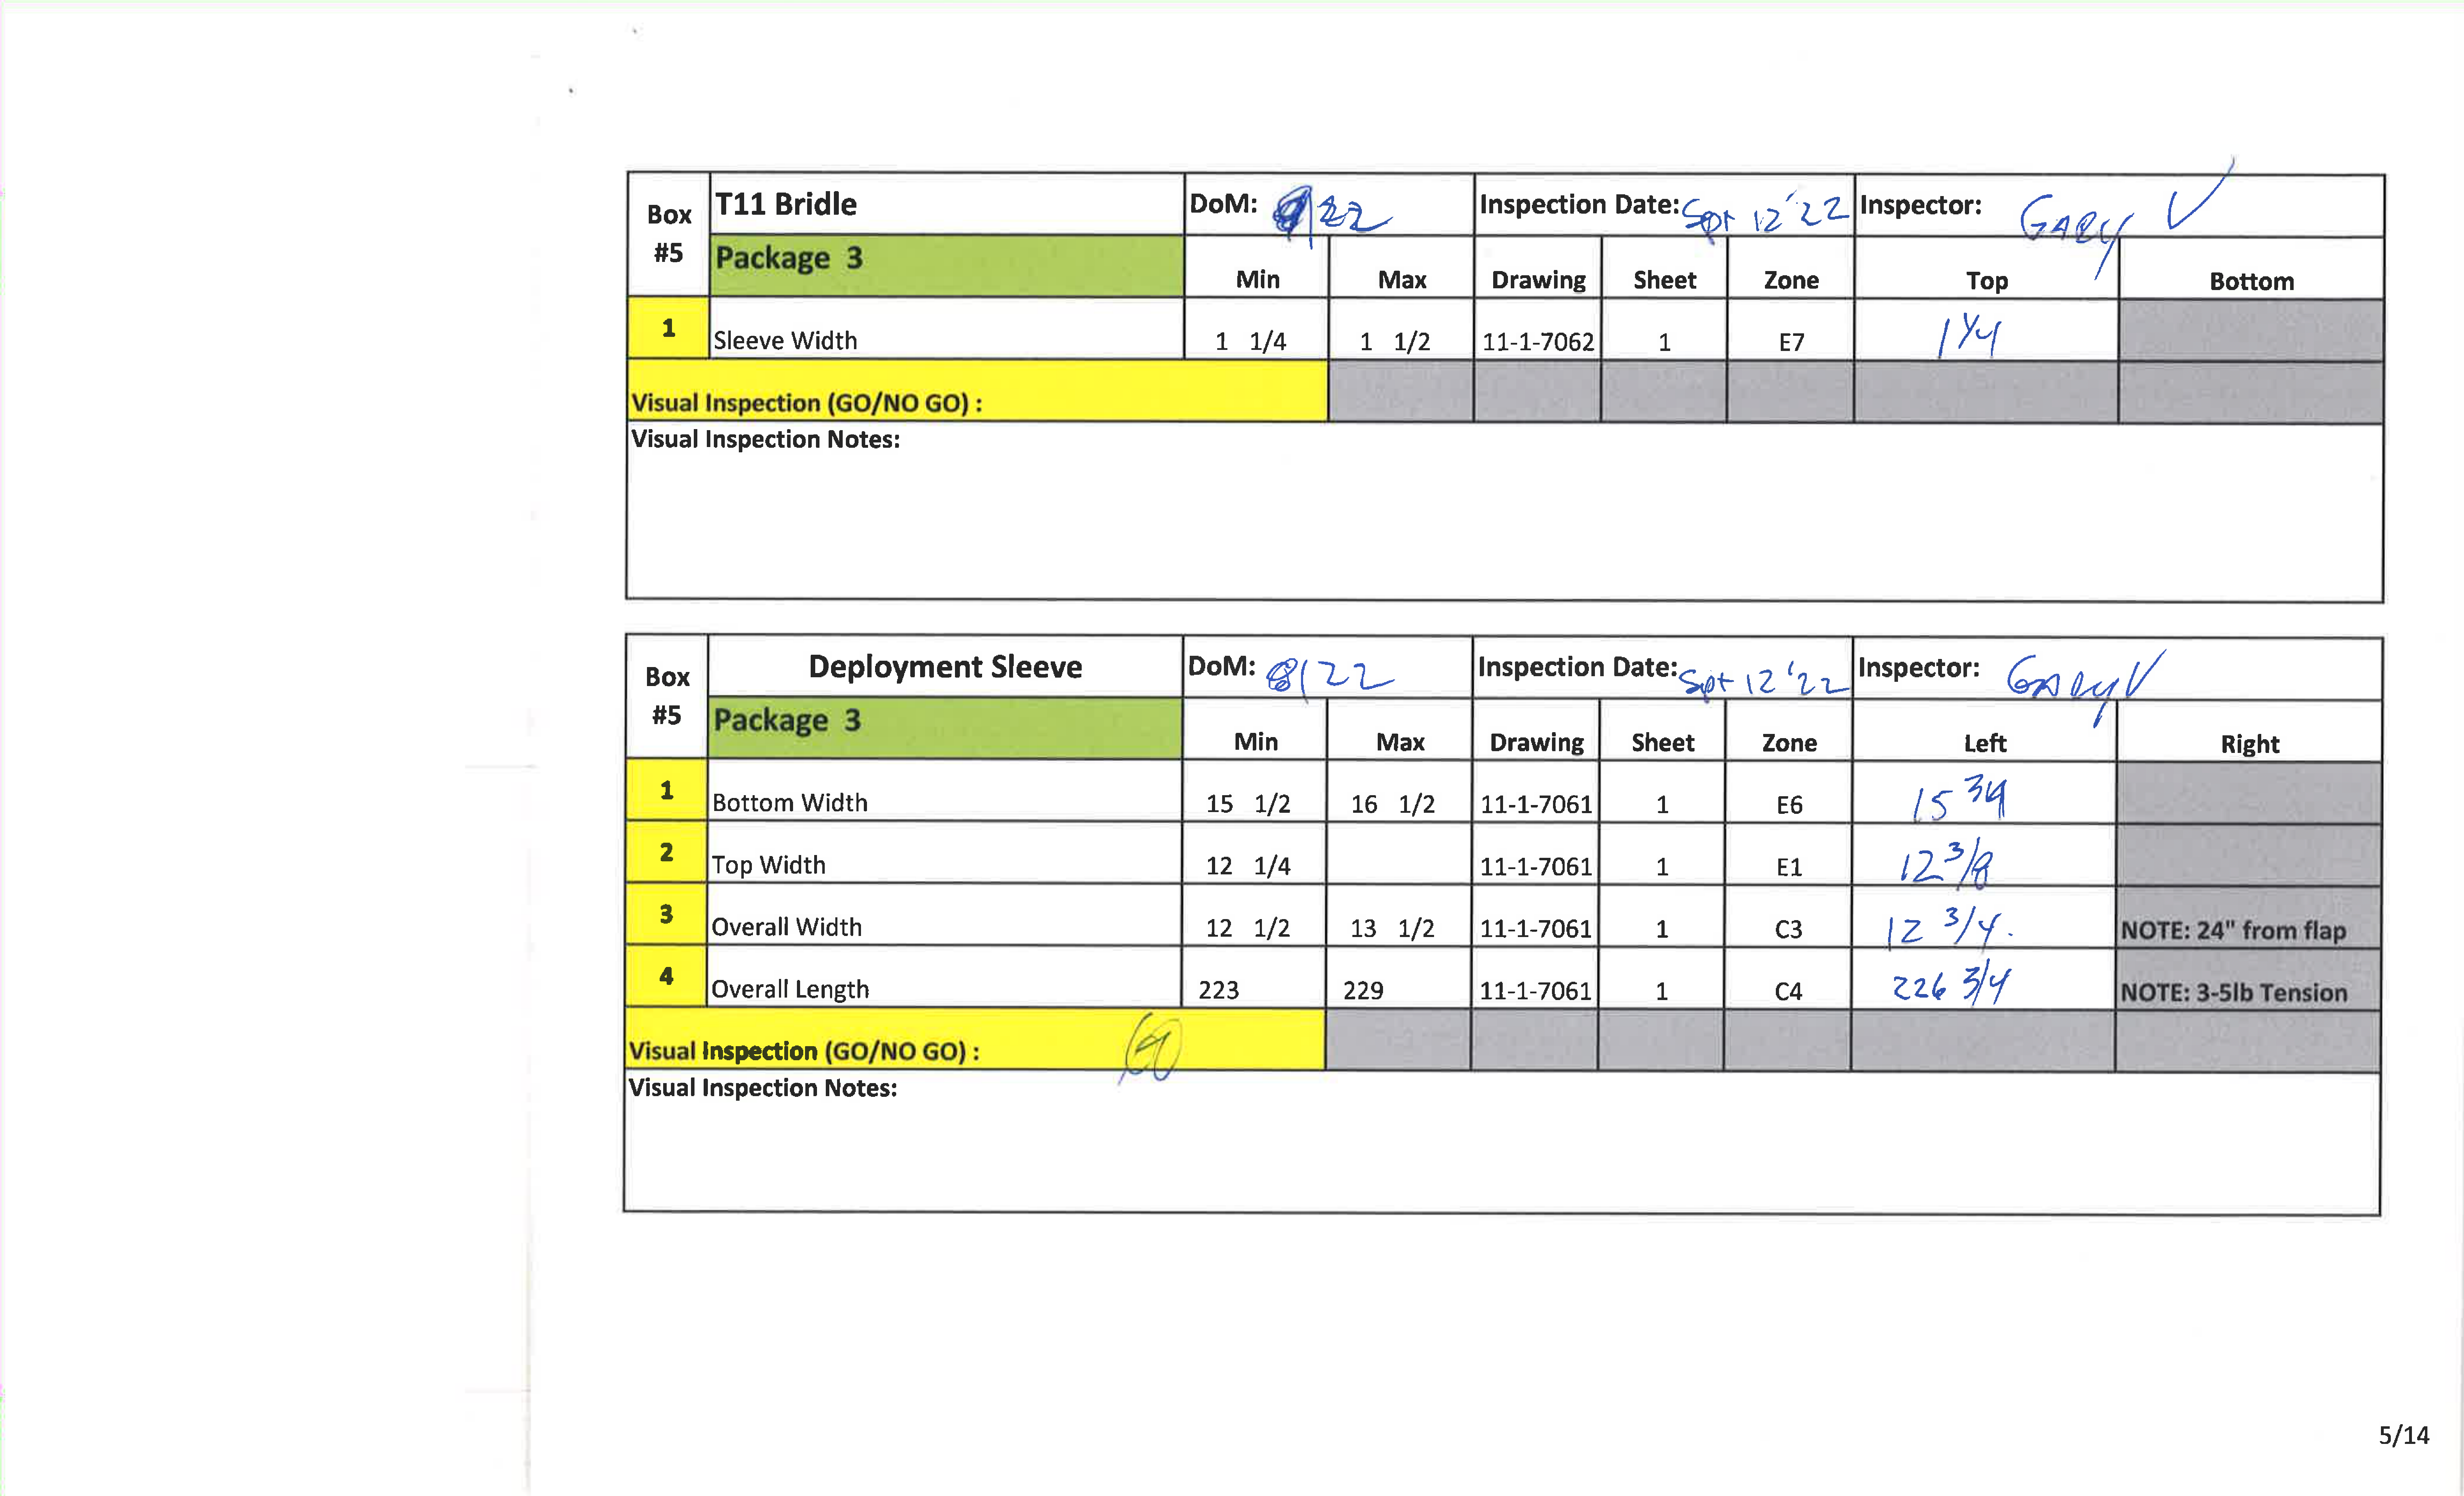 Box #5 T11 Bridle DoM: 9/22 Inspection Date: Spt 12 '22 Inspector: GARY V
Package 3 Min Max Drawing Sheet Zone Top Bottom
1 Sleeve Width 1 1/4 1 1/2 11-1-7062 1 E7 1 1/4
Visual Inspection (GO/NO GO) :
Visual Inspection Notes:
Box #5 Deployment Sleeve DoM: 8/22 Inspection Date: Spt 12 '22 Inspector: GARY V
Package 3 Min Max Drawing Sheet Zone Left Right
1 Bottom Width 15 1/2 16 1/2 11-1-7061 1 E6 15 3/4
2 Top Width 12 1/4 11-1-7061 1 E1 12 3/8
3 Overall Width 12 1/2 13 1/2 11-1-7061 1 C3 12 3/4. NOTE: 24" from flap
4 Overall Length 223 229 11-1-7061 1 C4 226 3/4 NOTE: 3-5lb Tension
Visual Inspection (GO/NO GO) : GO
Visual Inspection Notes:
5/14